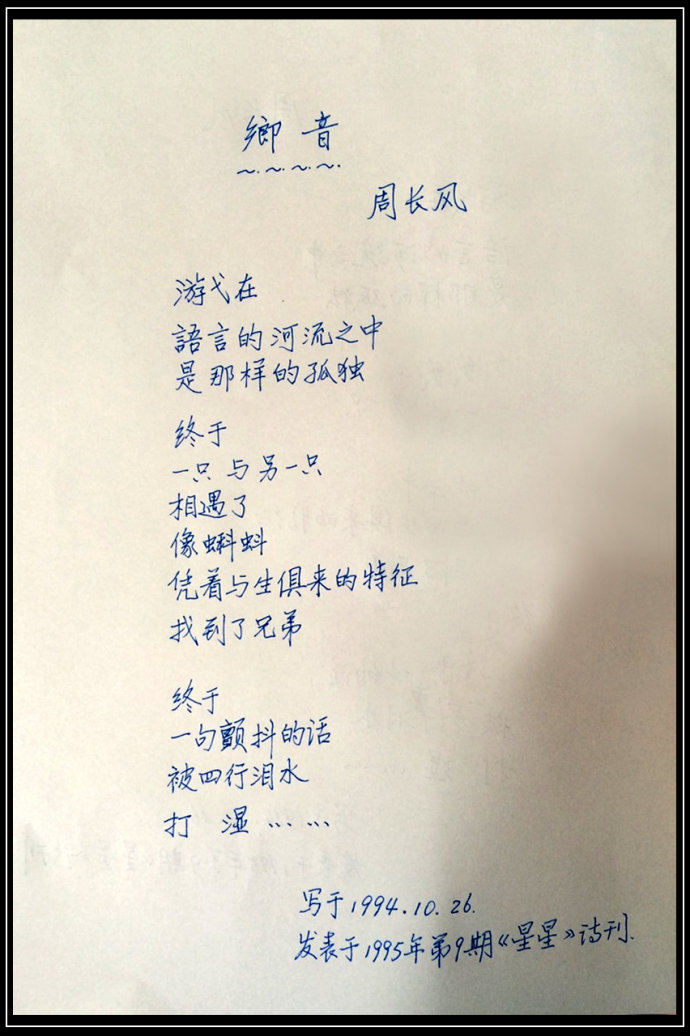 鄉音
周长风
游弋在
語言的河流之中
是那样的孤独
终于
一只与另一只
相遇了
像蝌蚪
凭着与生俱来的特征
找到了兄弟
终于
一句颤抖的话
被四行泪水
打 湿 …… 
写于1994.10.26.
发表于1995年第9期《星星》诗刊.